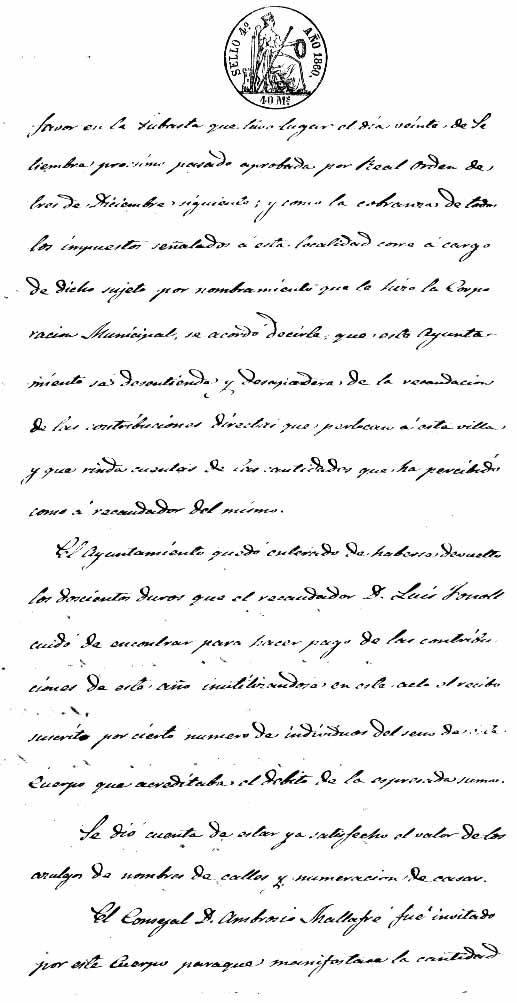 SELLO 4º. AÑO 1860.
40 Ms.
favor en la subasta que tuvo lugar el dia veinte de Se
tiembre procsimo pasado aprobada por Real orden de
tres de Diciembre siguiente; y como la cobranza de todos
los impuestos señalados á esta localidad corre á cargo
de dicho sujeto por nombramiento que le hizo la Corpo
racion Municipal, se acordó decirle; que este Ayunta-
miento se desentiende y desapadera de la recaudacion
de las contribuciones directas que pertocan á esta villa
y que rinda cuentas de las cantidades que ha percibido
como á recaudador del mismo.
El Ayuntamiento quedó enterado de haberse devuelto
los doscientos duros que el recaudador D. Luis
cuidó de encontrar para hacer pago de las contribu
ciones de este año inutilizandose en este acto el recibo
suscrito por cierto numero de individuos del seno de este
Cuerpo que acreditaba el debito de la espresada suma.
Se dió cuenta de estar ya satisfecho el valor de los
azulejos de nombres de calles y numeracion de casas.
El Consejal D. Ambrosio Mallafré fué invitado
por este Cuerpo paraque manifestase la cantidad